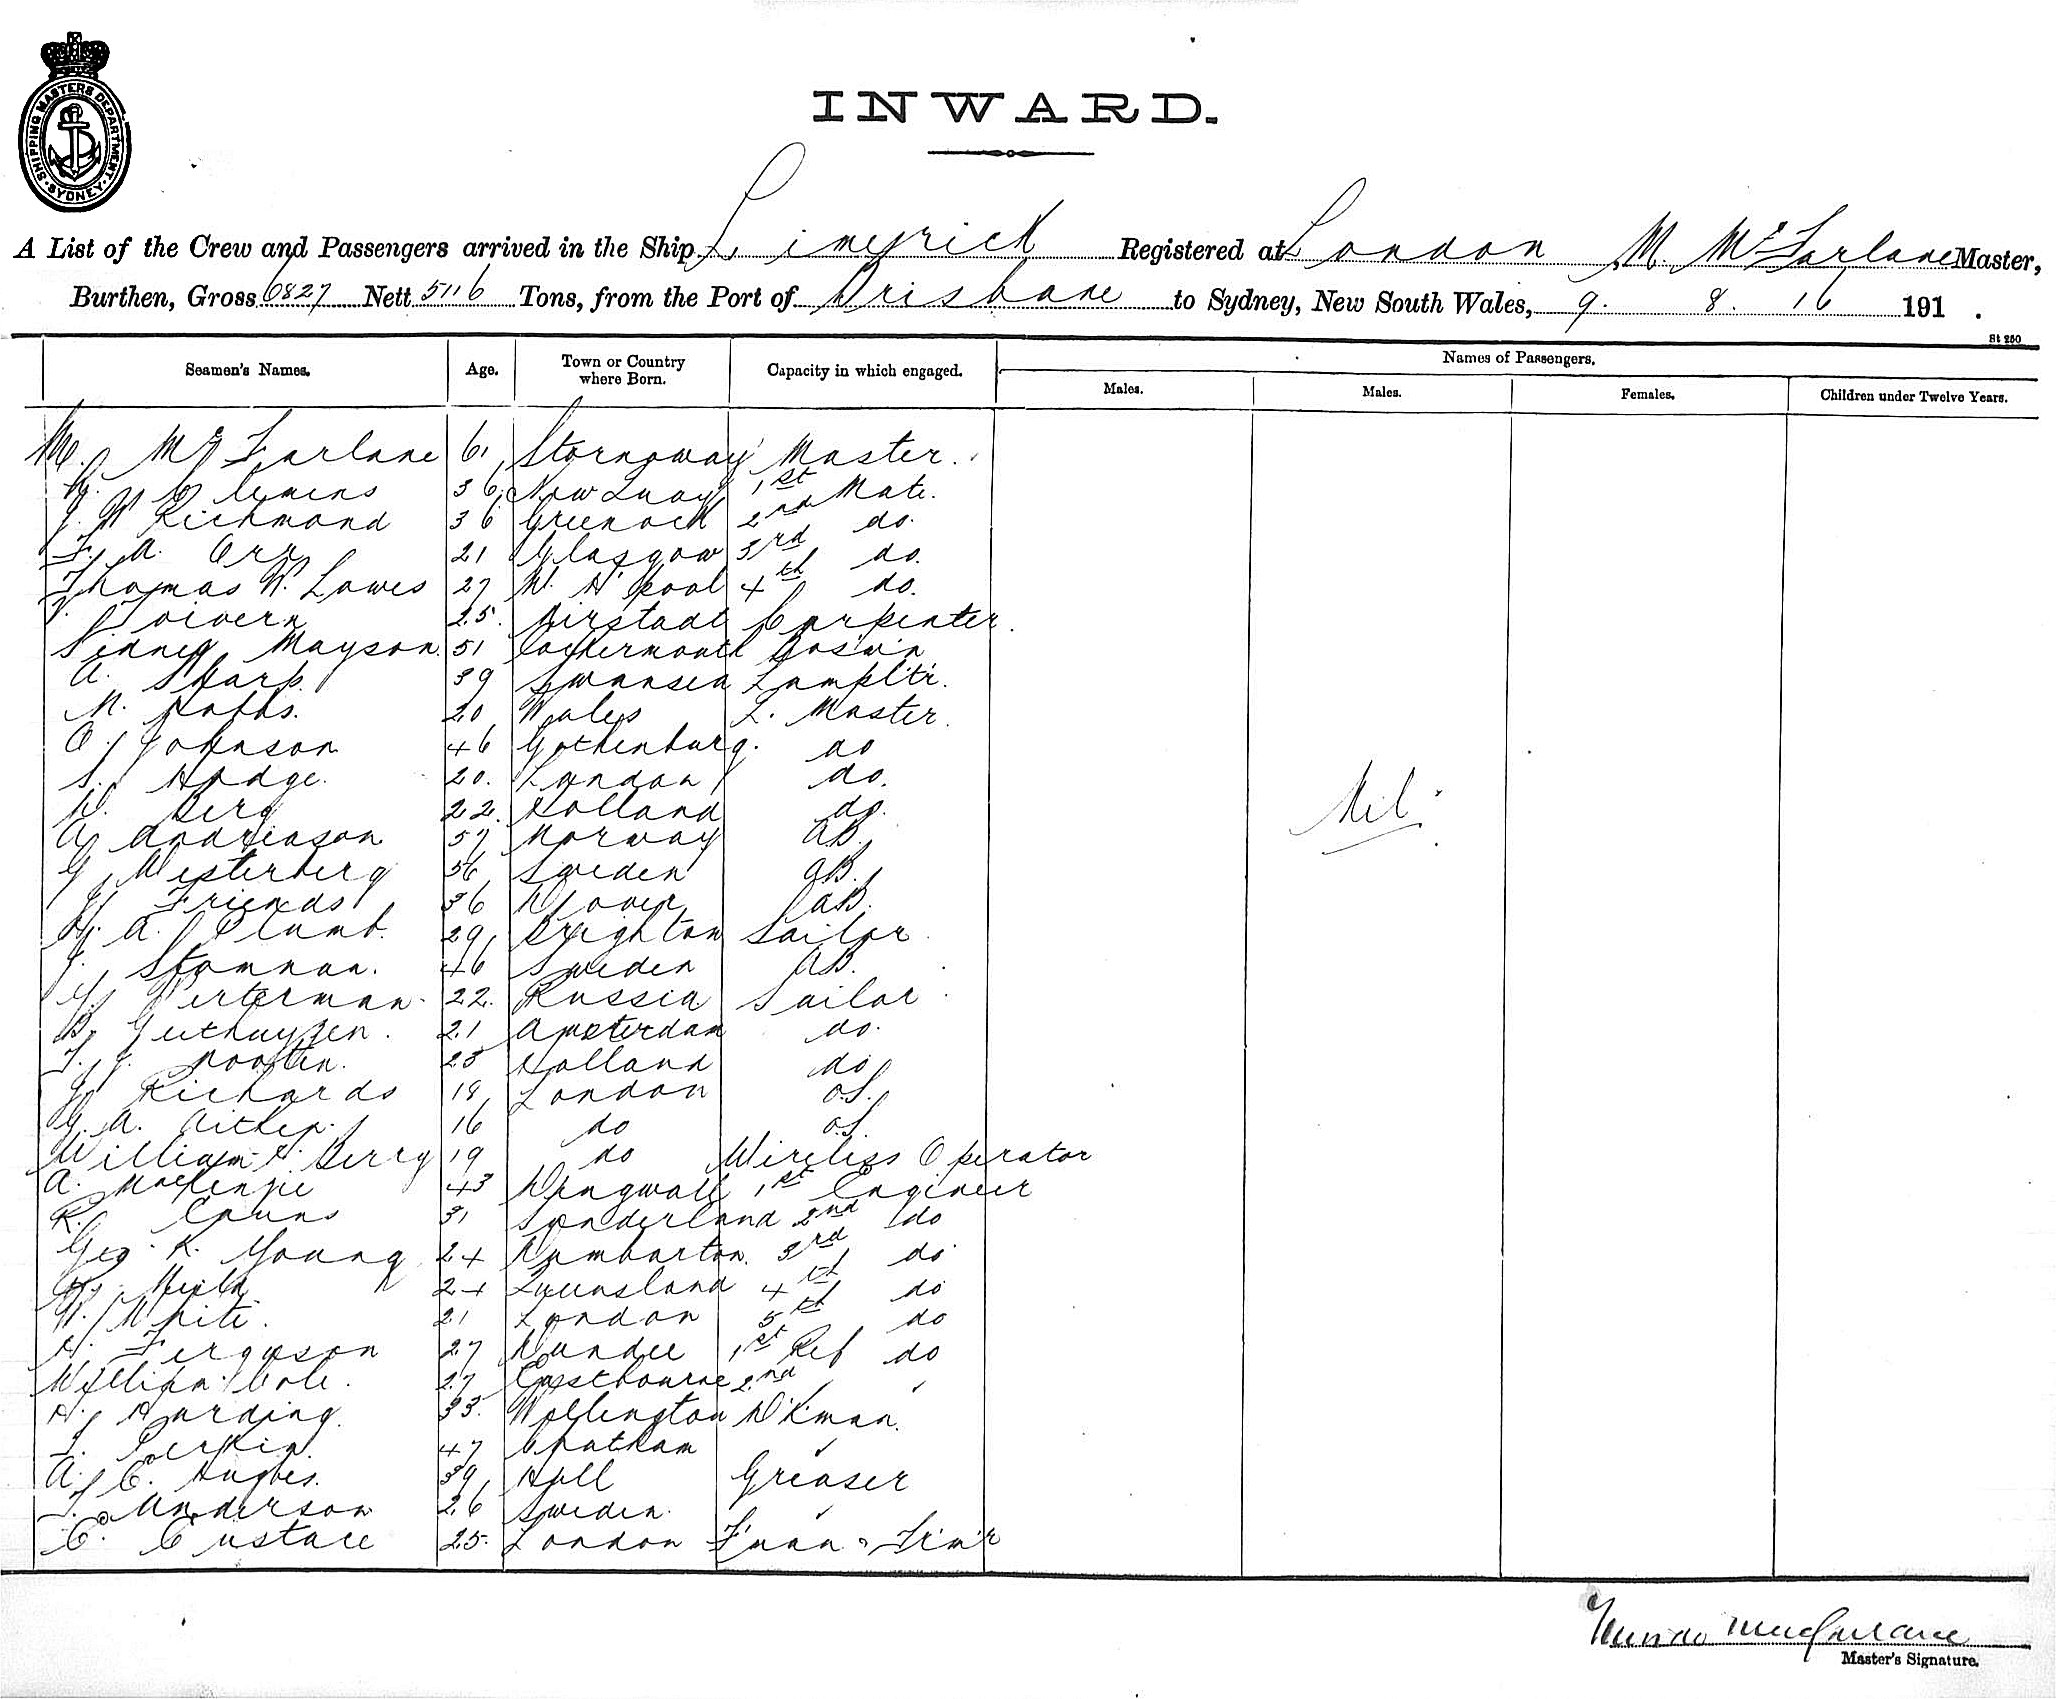 SHIPPING MASTERS DEPARTMENT · SYDNEY ·
INWARD.
A List of the Crew and Passengers arrived in the Ship Limerick Registered at London M. McFarlane Master,
Burthen, Gross 6827 Nett 5116 Tons, from the Port of Brisbane to Sydney, New South Wales, 9. 8. 16 191 .
St 250
Seamen's Names. Age. Town or Country where Born. Capacity in which engaged. Names of Passengers.
Males. Males. Females. Children under Twelve Years.
M. McFarlane 61 Stornoway Master.
Clemens 36 New Quay 1st Mate.
J. W Richmond 36 Greenock 2nd do.
F. A. Orr 21 Glasgow 3rd do.
Thomas W. Lowes 27 W. H'pool 4th do.
25. Carpenter.
Sidney Mayson. 51 Cockermouth Bos'n
A. Sharp. 39 Swansea Lamp
20 Wales L. Master.
O. Johnson 46 Gothenburg. do
S. Hodge. 20. London do.
W. Berg 22. Holland do.
A. Andreason 57 Norway AB.
G. Westerberg 56 Sweden AB.
J. Friends 36 Dover AB.
H. A. Plumb. 29 Brighton Sailor.
46 Sweden AB.
22. Russia Sailor.
21 Amsterdam do.
23 Holland do
G. Richards 18 London o.S.
G. A. Aitken. 16 do o.S.
William H. Berry 19 do Wireless Operator
A. MacKenzie 43 Dingwall 1st Engineer
R. 31 Sunderland 2nd do
Geo. K. Young 24 Dumbarton. 3rd do
24 Queensland 4th do
W. White. 21 London 5th do
H. Ferguson 27 Dundee 1st Ref do
William Cole. 27 Eastbourne 2nd " "
H. Harding. 33. Wellington D'kman.
J. Perkin. 47 Chatham "
A. E. Hughes. 39 Hull Greaser
J. Anderson 26 Sweden. "
E. Eustace 25. London F'man & Trim'r
Nil
Master's Signature.